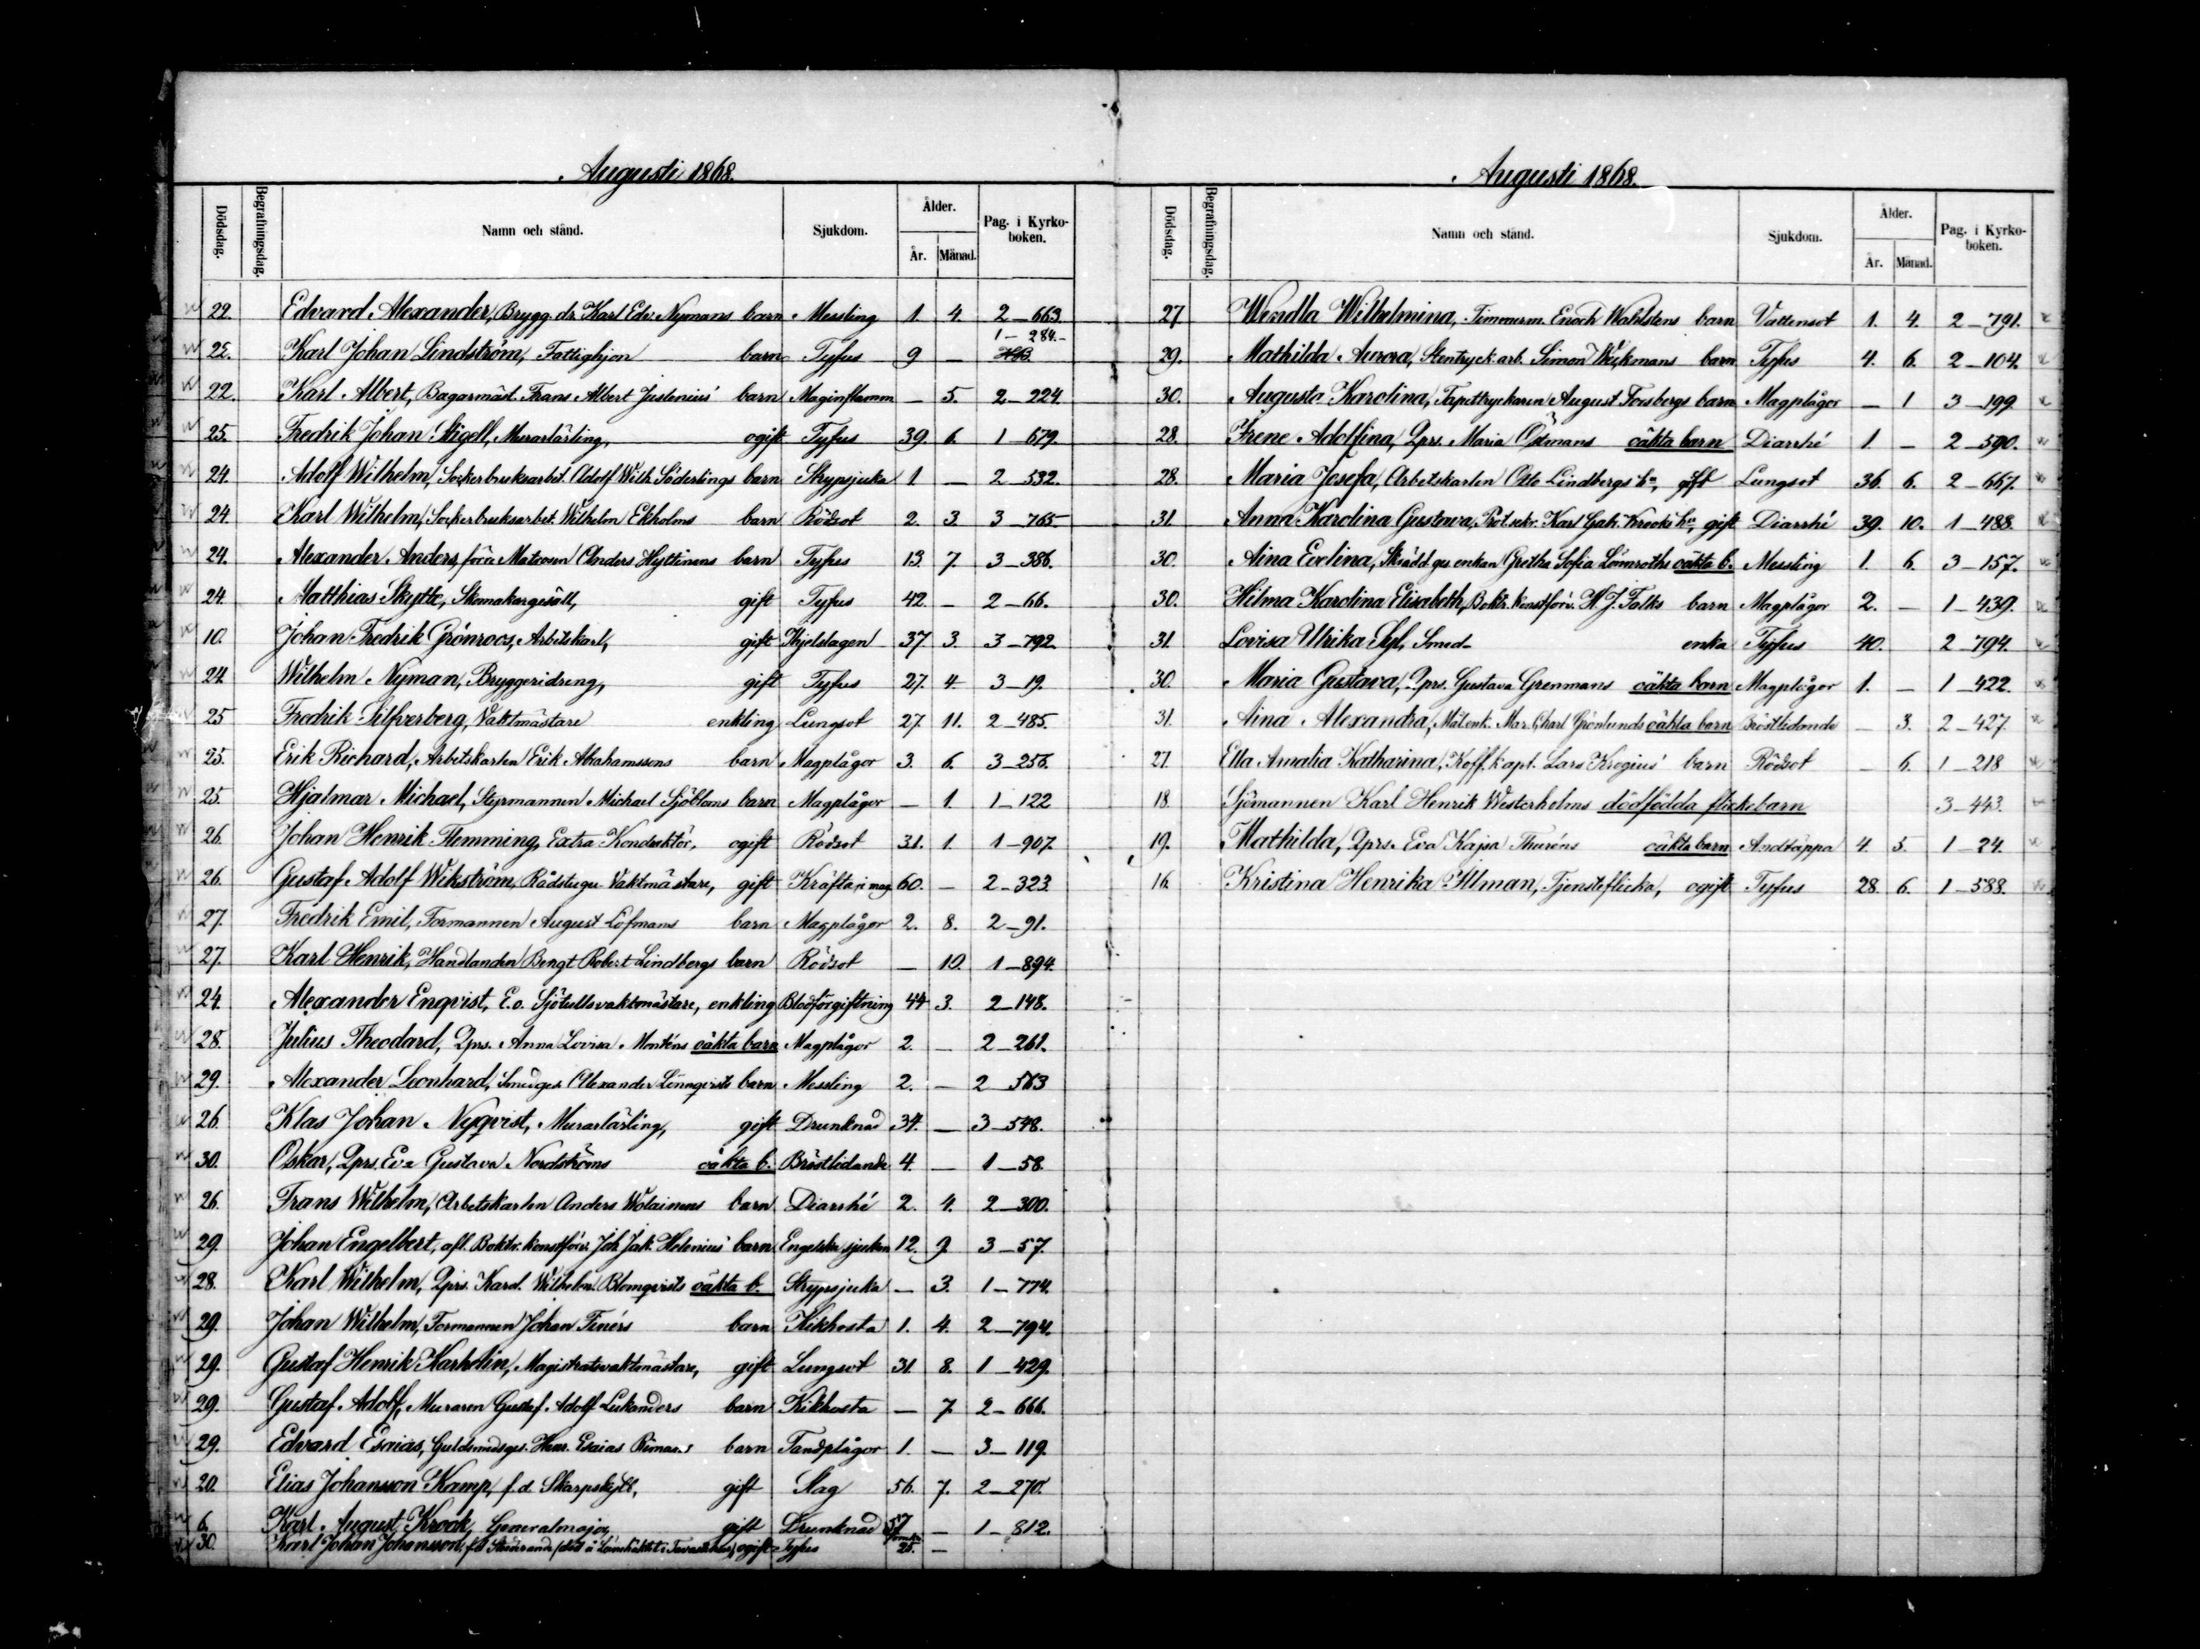 Augusti 1868.
Dödsdag. Begrafningsdag. Namn och stånd. Sjukdom. Ålder. År. Månad. Pag. i Kyrko-boken.
22. Edvard Alexander, Brygg. dr. Karl Edv. Nymans barn Messling 1. 4. 2–663.
22. Karl Johan Lindström, Fattighjon barn Tyfus 9 — 1–284.
22. Karl Albert, Bagarmäst. Frans Albert Juslenius' barn Maginflamm — 5. 2–224.
25. Fredrik Johan Stigell, Murarlärling, ogift Tyfus 39. 6. 1–679.
24. Adolf Wilhelm, Sockerbruksarbet. Adolf Wilh. Söderlings barn Strypsjuka 1 — 2–532.
24. Karl Wilhelm, Sockerbruksarbet. Wilhelm Ekholms barn Rödsot 2. 3. 3–765
24. Alexander Anders, förre Matrosen Anders Hyttinens barn Tyfus 13. 7. 3–386.
24. Matthias Skyttc, Skomakargesäll, gift Tyfus 42. — 2–66.
10. Johan Fredrik Grönroos, Arbetskarl, gift ihjelslagen 37. 3. 3–792.
24. Wilhelm Nyman, Bryggeridreng, gift Tyfus 27. 4. 3–19.
25 Fredrik Silfverberg, Vaktmästare enkling Lungsot 27. 11. 2–485.
25. Erik Richard, Arbetskarlen Erik Abrahamssons barn Magplågor 3. 6. 3–256.
25. Hjalmar Michael, Styrmannen Michael Sjöbloms barn Magplågor — 1. 1–122
26. Johan Henrik Flemming, Extra Konduktör, ogift Rödsot 31. 1. 1–907.
26. Gustaf Adolf Wikström, Rådstugu Vaktmästare, gift Kräfta i mag. 60. — 2–323.
27. Fredrik Emil, Formannen August Löfmans barn Magplågor 2. 8. 2–91.
27. Karl Henrik, Handlanden Bengt Robert Lindbergs barn Rödsot — 10. 1–894.
24. Alexander Enqvist, E.o. Sjötullsvaktmästare, enkling Blodförgiftning 44 3. 2–148.
28. Julius Theodard, Qprs. Anna Lovisa Monténs oäkta barn Magplågor 2. — 2–261.
29. Alexander Leonhard, Smedges. Alexander Lönnqvists barn Messling 2. — 2–563
26. Klas Johan Nyqvist, Murarlärling, gift Drunknad 34. — 3–548.
30. Oskar, Qprs. Eva Gustava Nordströms oäkta b. Bröstlidande 4. — 1–58.
26. Frans Wilhelm, Arbetskarlen Anders Wolainens barn Diarrhé 2. 4. 2–300.
29. Johan Engelbert, afl. Boktr. konstförv. Joh. Jak. Helenius' barn Engelska sjukan 12. 9. 3–57.
28. Karl Wilhelm, Qprs. Karol. Wilhelm. Blomqvists oäkta b. Strypsjuka — 3. 1–774.
29. Johan Wilhelm, Formannen Johan Finérs barn Kikhosta 1. 4. 2–794.
29. Gustaf Henrik Karhelin, Magistratsvaktmästare, gift Lungsot 31. 8. 1–429.
29. Gustaf Adolf, Muraren Gustaf Adolf Lukanders barn Kikhosta — 7. 2–666.
29. Edvard Esaias, Guldsmedsges. Esaias barn Tandplågor 1. — 3–119.
20. Elias Johansson Kamp, f.d. Skarpskytt, gift Slag 56. 7. 2–270.
6. Karl August Krook, Generalmajor, gift Drunknad 57 — 1–812.
30. Karl Johan Johansson, ogift Tyfus 28. —
Augusti 1868.
Dödsdag. Begrafningsdag. Namn och stånd. Sjukdom. Ålder. År. Månad. Pag. i Kyrko-boken.
27 Wendla Wilhelmina, Timmerm. Enoch Wahlstens barn Vattensot 1. 4. 2–791.
29. Mathilda Aurora, Stentryck. arb. Simon Wickmans barn Tyfus 4. 6. 2–104.
30. Augusta Karolina, Tapettryckaren August Forsbergs barn Magplågor — 1 3–199
28. Irene Adolfina, Qprs. Maria Östmans oäkta barn Diarrhé 1. — 2–590.
28. Maria Josefa, Arbetskarlen Otto Lindbergs h:u, gift Lungsot 36. 6. 2–667.
31. Anna Karolina Gustava, Prot.sekr. Karl Gab. Krooks h:u, gift Diarrhé 39. 10. 1–488.
30. Aina Evelina, Skrädd.ges. enkan Gretha Sofia Lönnroths oäkta b. Messling 1. 6. 3–157.
30. Hilma Karolina Elisabeth, Boktr. konstförv. H. J. Falks barn Magplågor 2. — 1–439.
31. Lovisa Ulrika Syl, Smed- enka Tyfus 40. 2–794.
30. Maria Gustava, Qprs. Gustava Grenmans oäkta barn Magplågor 1. — 1–422.
31. Aina Alexandra, Mål.enk. Mar. Charl. Grönlunds oäkta barn Bröstlidande — 3. 2–427.
27. Ella Amalia Katharina, Koff. kapt. Lars Krogius' barn Rödsot — 6. 1–218
18. Sjömannen Karl Henrik Westerholms dödfödda flickebarn 3–443.
19. Mathilda, Qprs. Eva Kajsa Thuréns oäkta barn Andtäppa 4. 5. 1–24.
16. Kristina Henrika Illman, Tjensteflicka, ogift Tyfus 28. 6. 1–588.